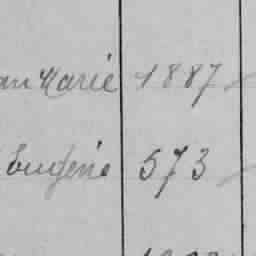 an Marie 1887
Eugène 573